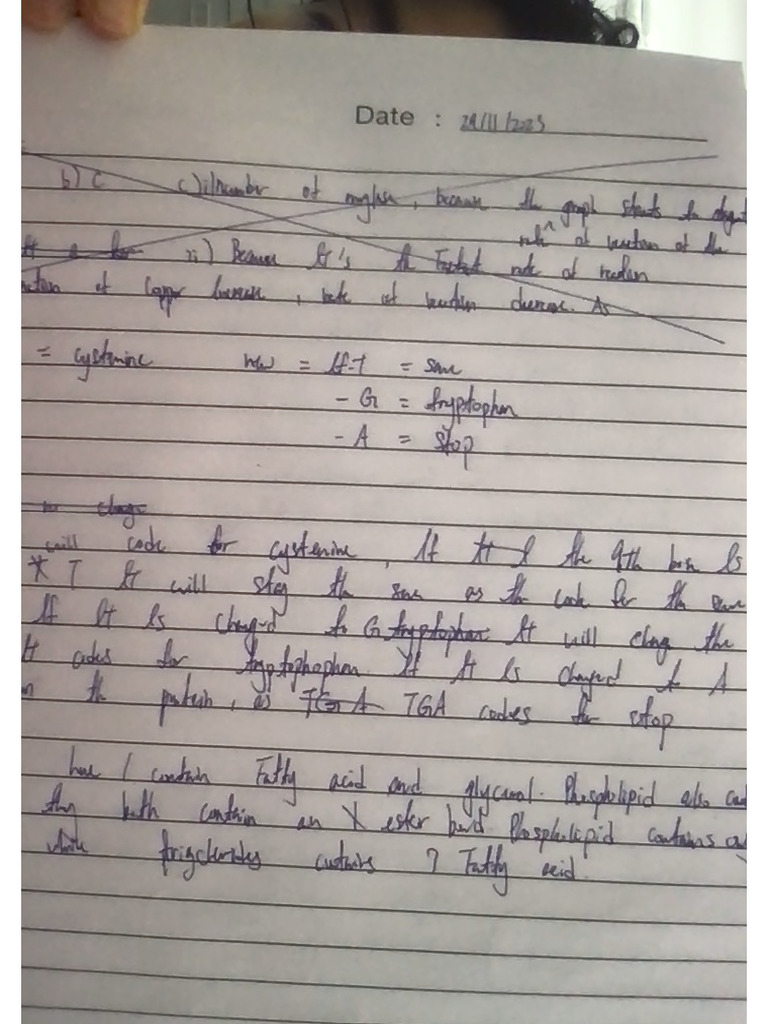 Date : 29/11/2023
b) C c) i) number of , because the graph starts to
rate of reaction at the
ii) Because It's the Fastest rate of reaction
of Copper Increase, rate of reaction decrease. As
= cystenine new = If - T = same
- G = tryptophan
- A = stop
will code for cystenine, If the 9th base Is
T It will stay the same as the code for the same
If It Is changed to G tryptophan It will chang the
It codes for tryptophophan If It Is changed to A
the protein, as TGA TGA codes for stop
have / contain Fatty acid and glycerol. Phospholipid also
they both contain an ester bond Phospholipid contains
while trigclerides contains 3 Fatty acid.